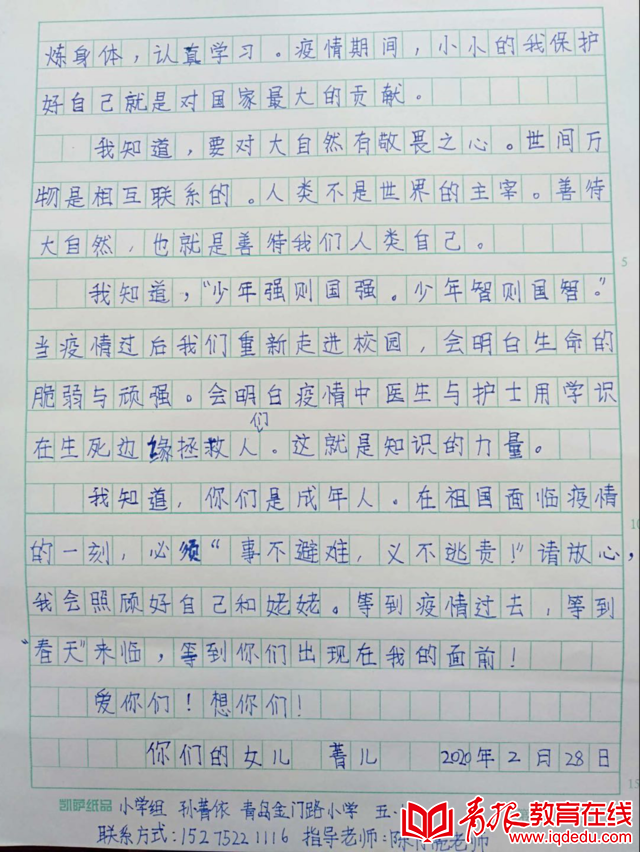 炼身体，认真学习。疫情期间，小小的我保护
好自己就是对国家最大的贡献。
我知道，要对大自然有敬畏之心。世间万
物是相互联系的。人类不是世界的主宰。善待
大自然，也就是善待我们人类自己。
我知道，“少年强则国强。少年智则国智。”
当疫情过后我们重新走进校园，会明白生命的
脆弱与顽强。会明白疫情中医生与护士用学识
在生死边缘拯救人们。这就是知识的力量。
我知道，你们是成年人。在祖国面临疫情
的一刻，必须“事不避难，义不逃责！”请放心，
我会照顾好自己和姥姥。等到疫情过去，等到
“春天”来临，等到你们出现在我的面前！
爱你们！想你们！
你们的女儿 菁儿 2020年2月28日
凯萨纸品 小学组 孙菁依 青岛金门路小学 五.
联系方式:15275221116 指导老师:陈 老师
5
10
15
青报教育在线
www.iqdedu.com